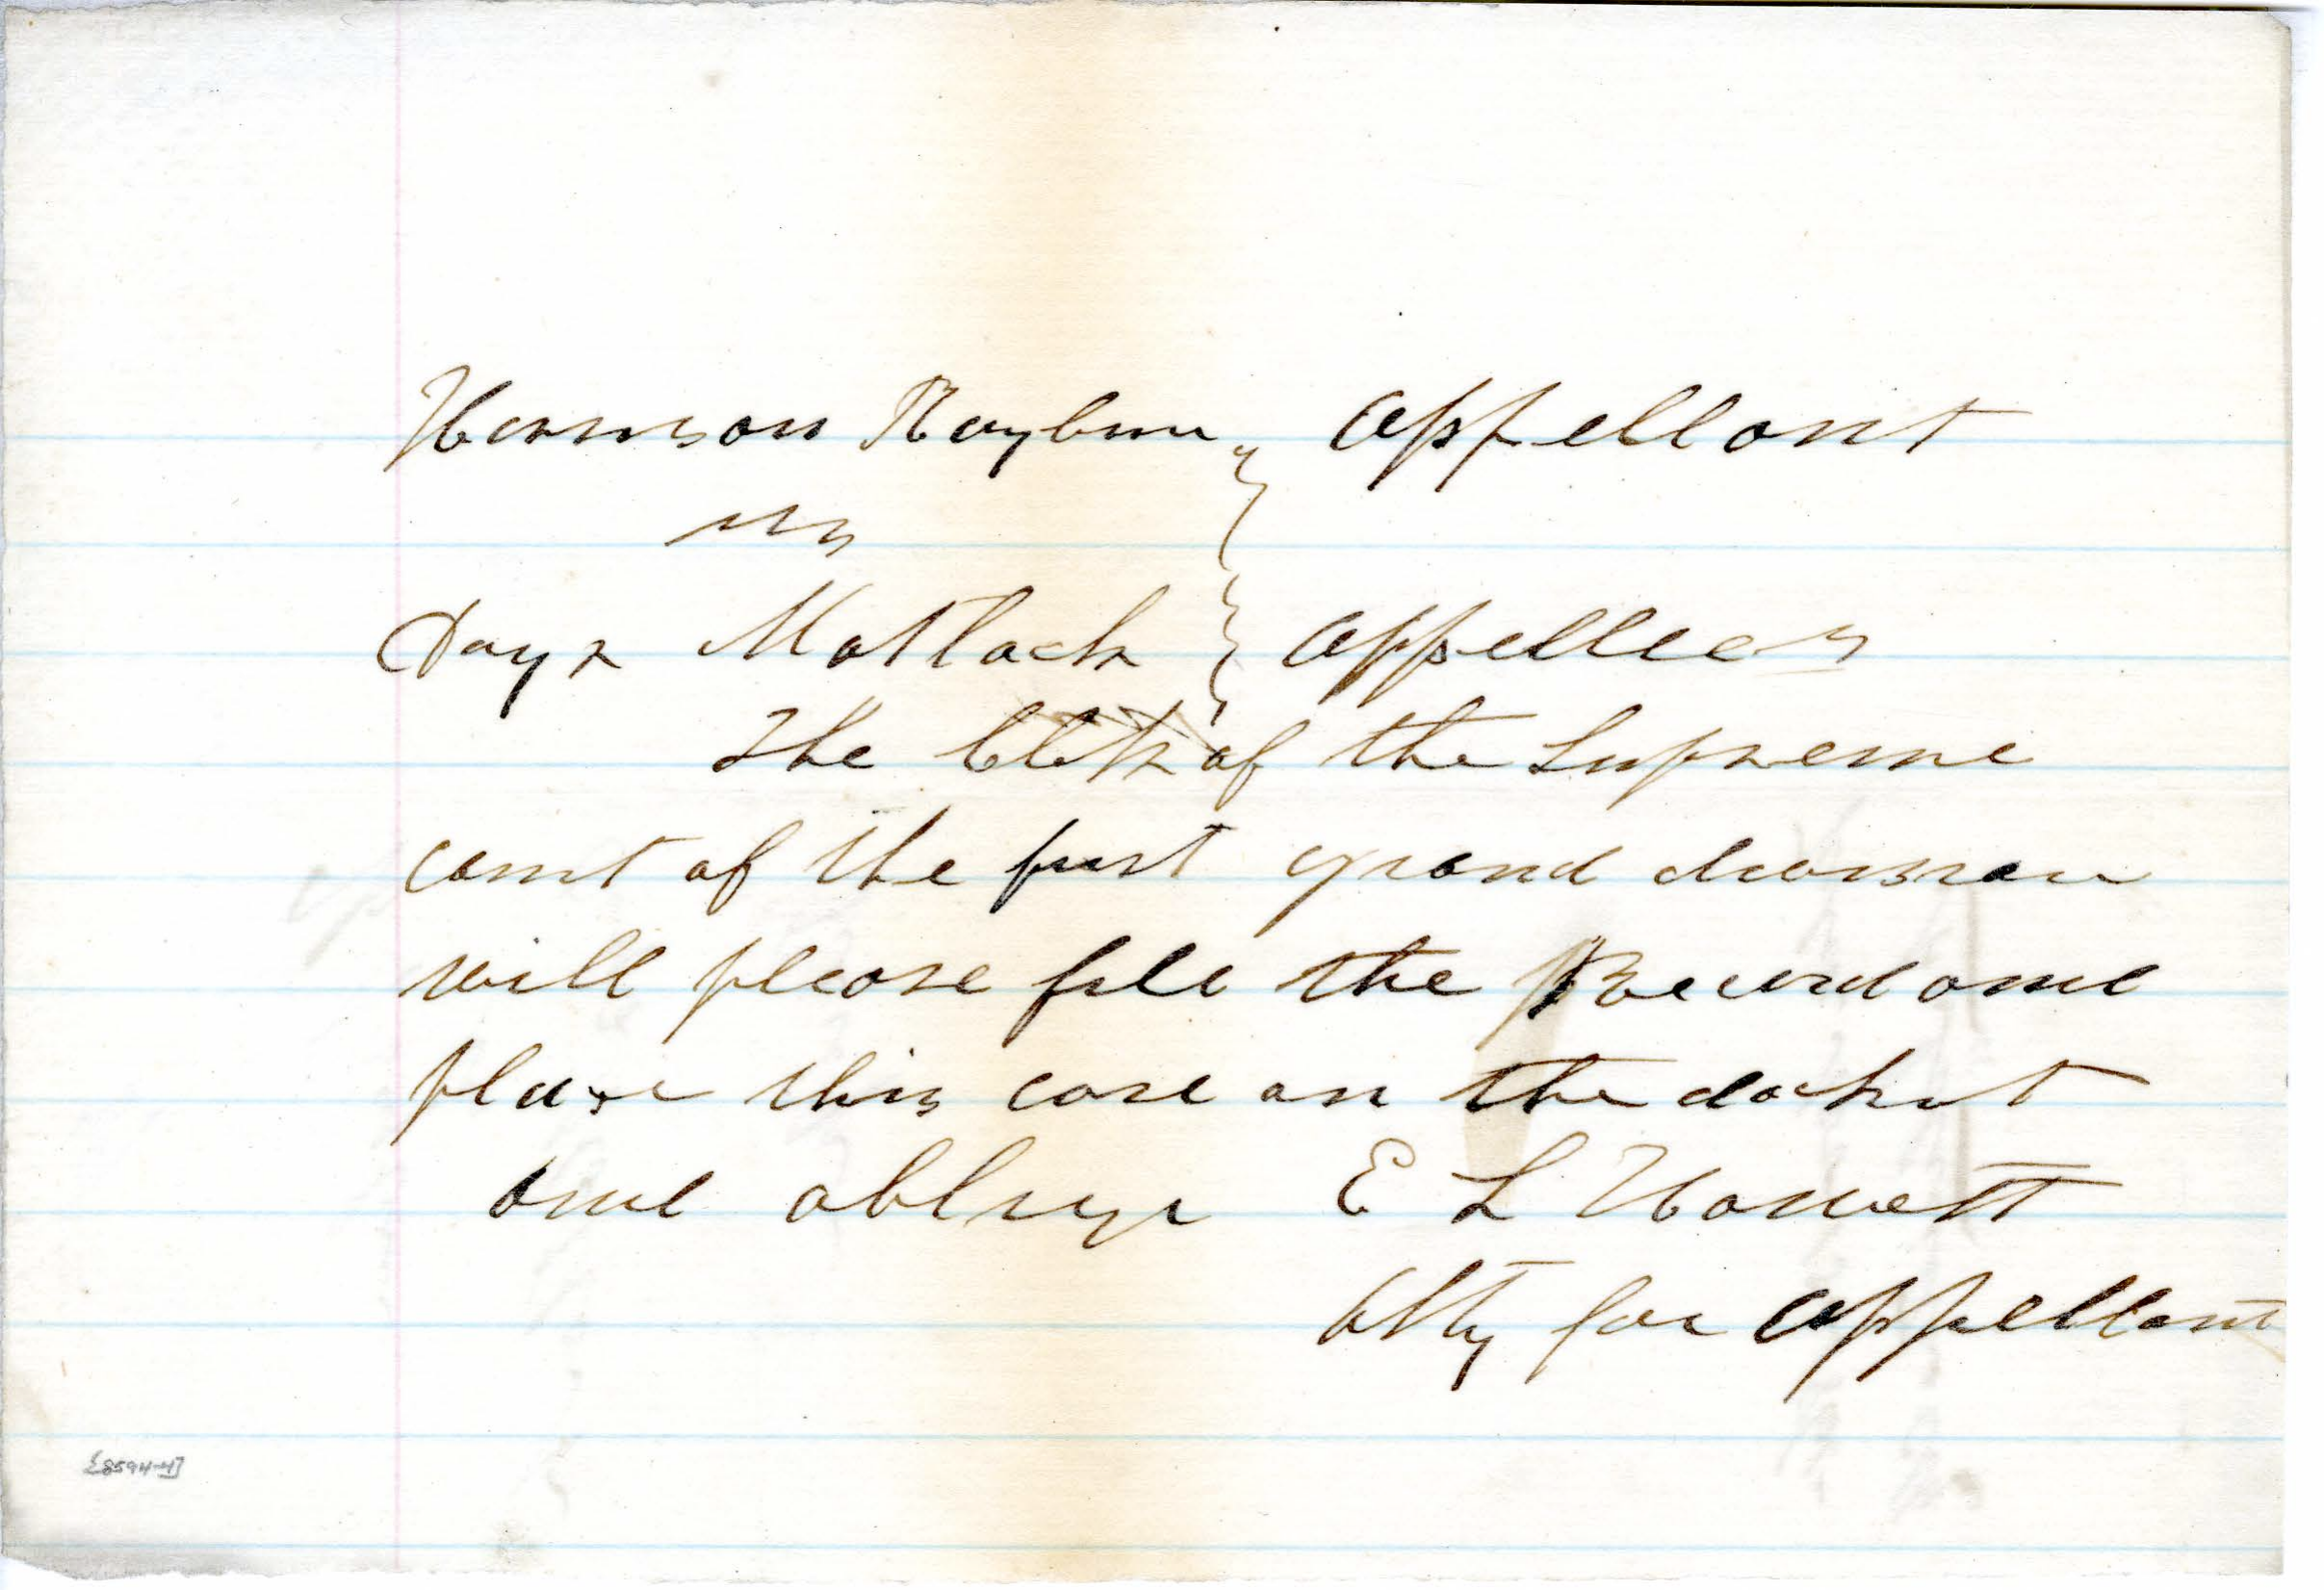 Harrison Raybur } Appellant
vs
Day & Matlack } Appellees
The Clerk of the Supreme
court of the first grand division
will please file the Record and
place this case on the docket
and oblige E L
Atty for Appellant
[8594-4]